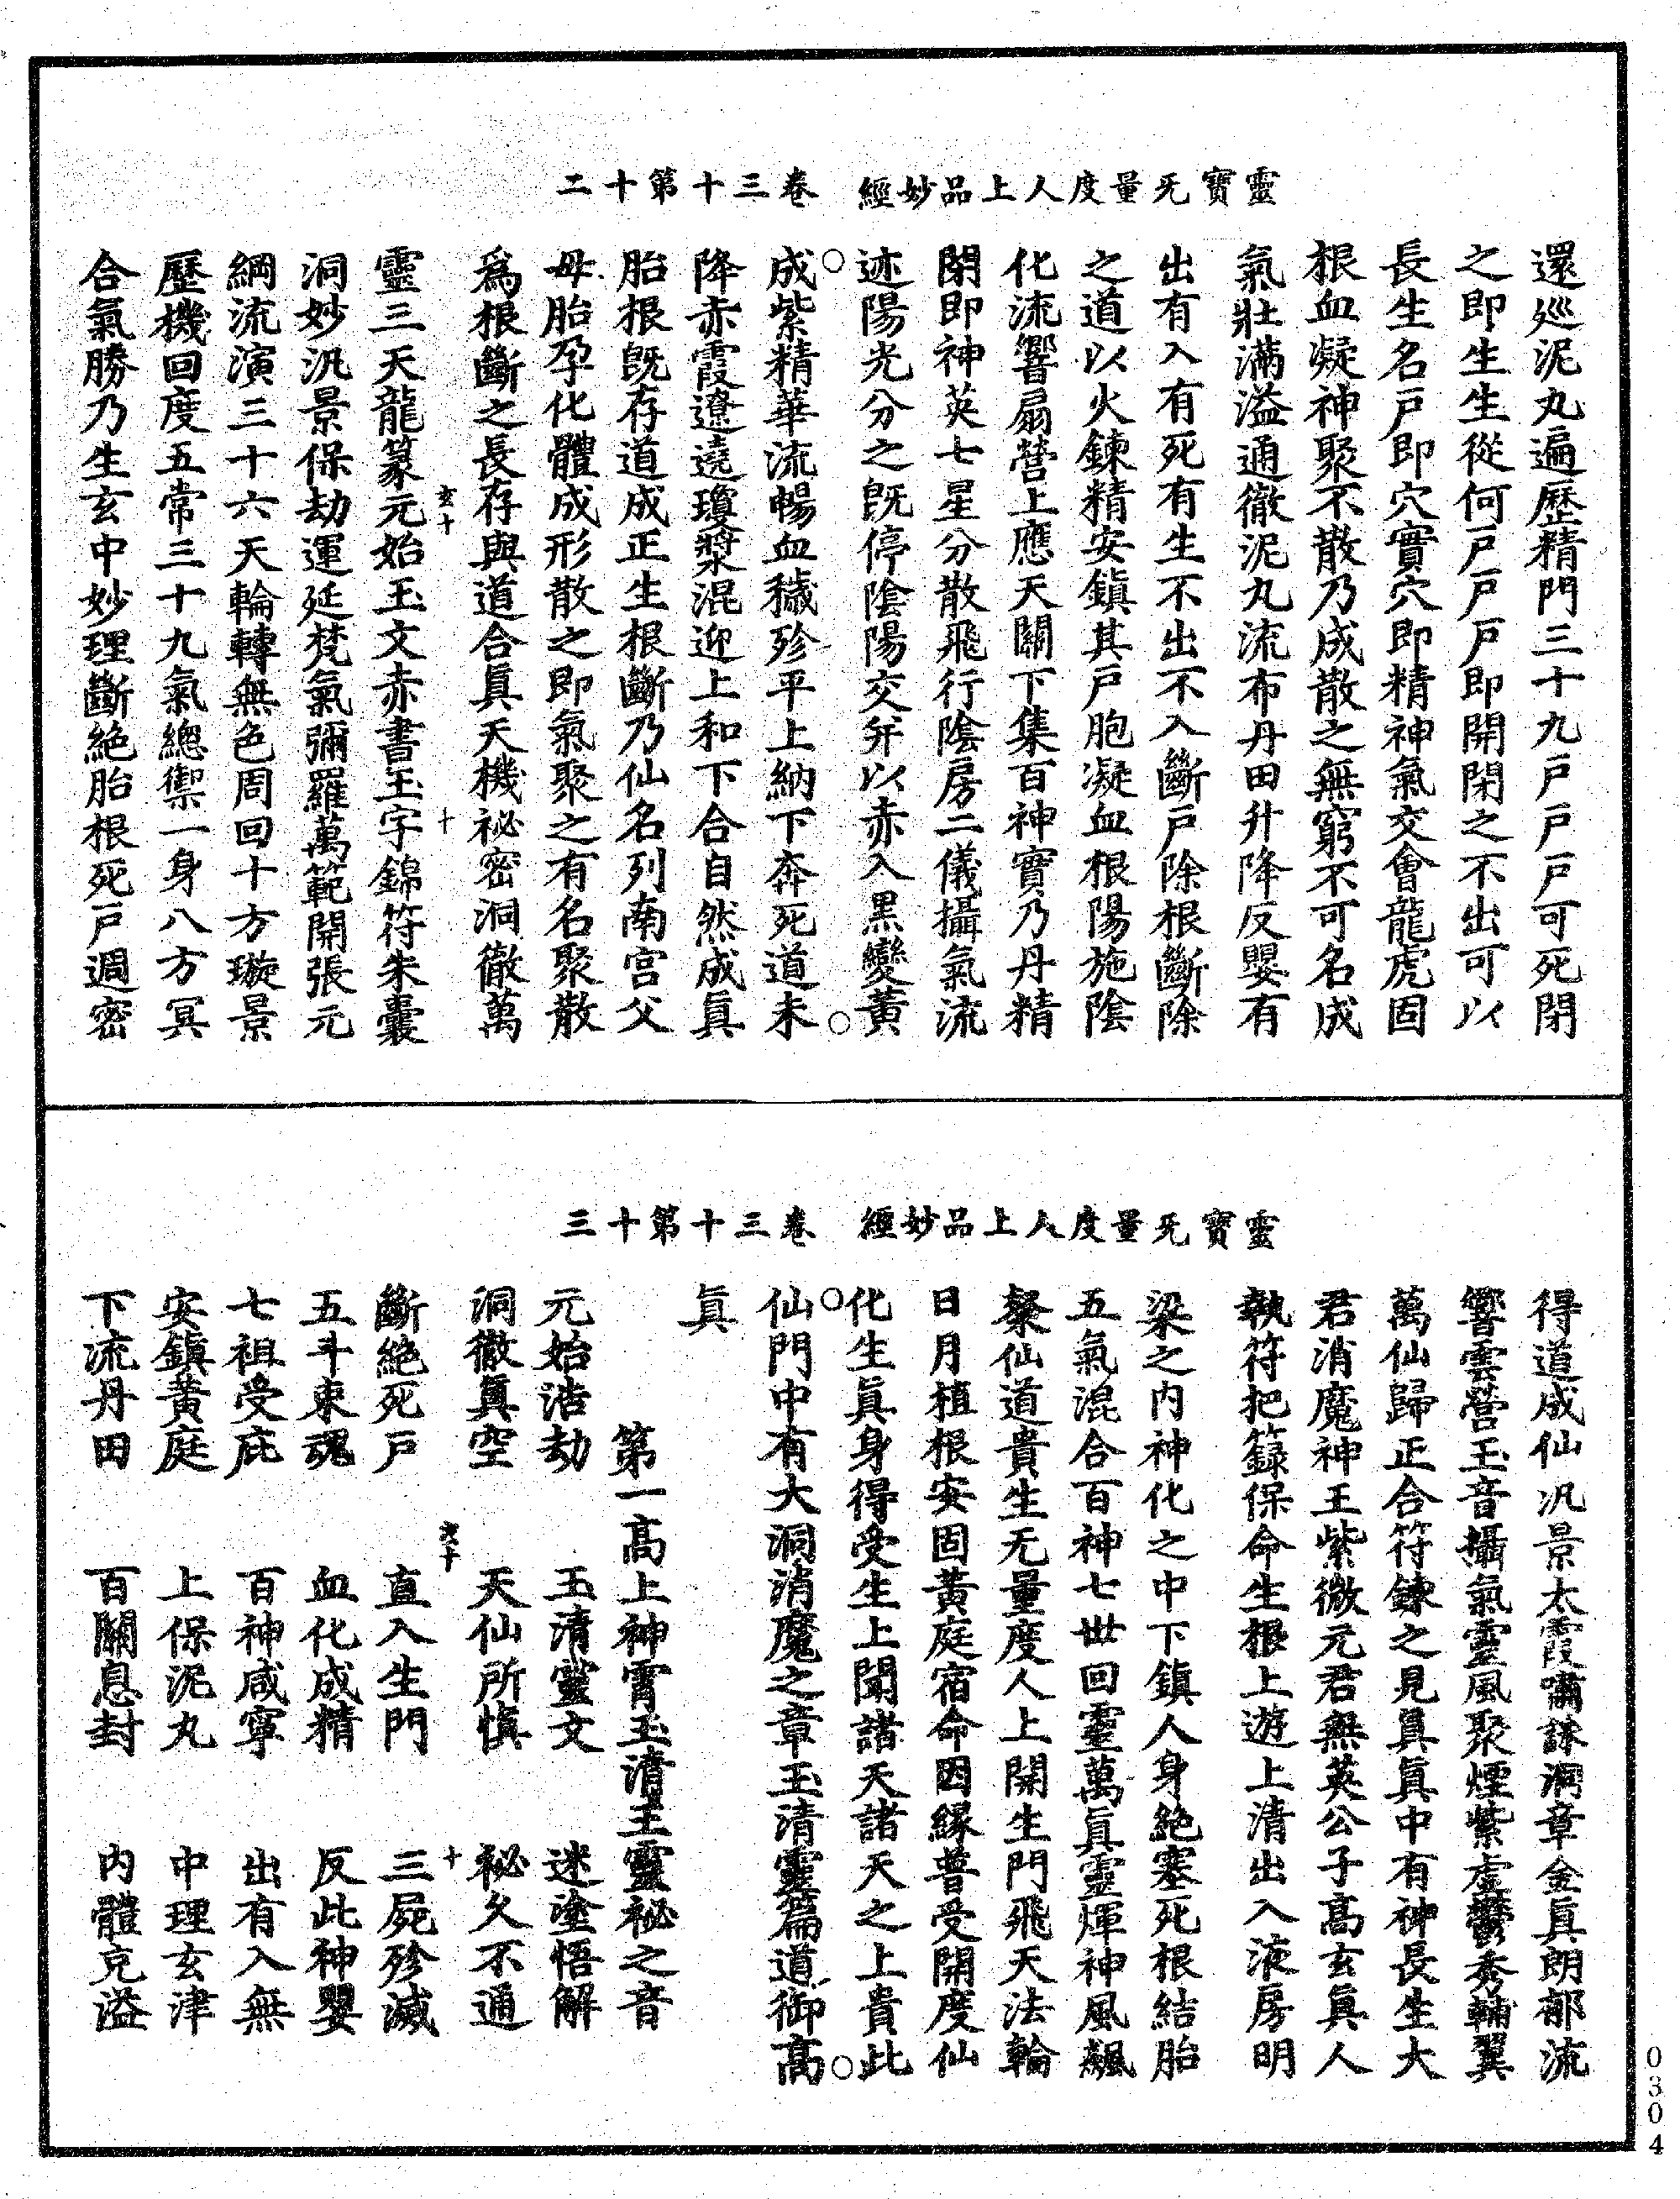 靈寶无量度人上品妙經　卷三十第十二
還廵泥丸遍歷精門三十九戶戶戶可死閉
之即生生從何戶戶戶即開閉之不出可以
長生名戶即穴實穴即精神氣交會龍虎固
根血凝神聚不散乃成散之無窮不可名成
氣壯滿溢通徹泥丸流布丹田升降反嬰有
出有入有死有生不出不入斷戶除根斷除
之道以火鍊精安鎮其戶胞凝血根陽施陰
化流響扇營上應天關下集百神實乃丹精
閉即神英七星分散飛行陰房二儀攝氣流
迹陽光分之旣停陰陽交并以赤入黑變黃
成紫精華流暢血穢殄平上納下奔死道未
降赤霞遼遶瓊漿混迎上和下合自然成眞
胎根旣存道成正生根斷乃仙名列南宮父
母胎孕化體成形散之即氣聚之有名聚散
爲根斷之長存與道合眞天機祕密洞徹萬
玄十　十
靈三天龍篆元始玉文赤書玉字錦符朱囊
洞妙汎景保劫運延梵氣彌羅萬範開張元
綱流演三十六天輪轉無色周回十方璇景
歷機回度五常三十九氣總禦一身八方冥
合氣勝乃生玄中妙理斷絕胎根死戶週密
靈寶无量度人上品妙經　卷三十第十三
得道成仙汎景太霞嘯詠洞章金眞朗郁流
響雲營玉音攝氣靈風聚煙紫虛鬱秀輔翼
萬仙歸正合符鍊之見眞眞中有神長生大
君消魔神王紫微元君無英公子高玄眞人
執符把籙保命生根上遊上清出入液房明
梁之內神化之中下鎮人身絕塞死根結胎
五氣混合百神七世回靈萬眞靈煇神風飆
粲仙道貴生无量度人上開生門飛天法輪
日月植根安固黃庭宿命因緣普受開度仙
化生眞身得受生上聞諸天諸天之上貴此
仙門中有大洞消魔之章玉清靈篇道御高
眞
第一高上神霄玉清王靈祕之音
元始浩劫　玉清靈文　迷塗悟解
洞徹眞空　天仙所愼　祕久不通
玄十　十
斷絕死戶　直入生門　三屍殄滅
五斗束魂　血化成精　反此神嬰
七祖受庇　百神咸寧　出有入無
安鎮黃庭　上保泥丸　中理玄津
下流丹田　百關息封　內體充溢
0304